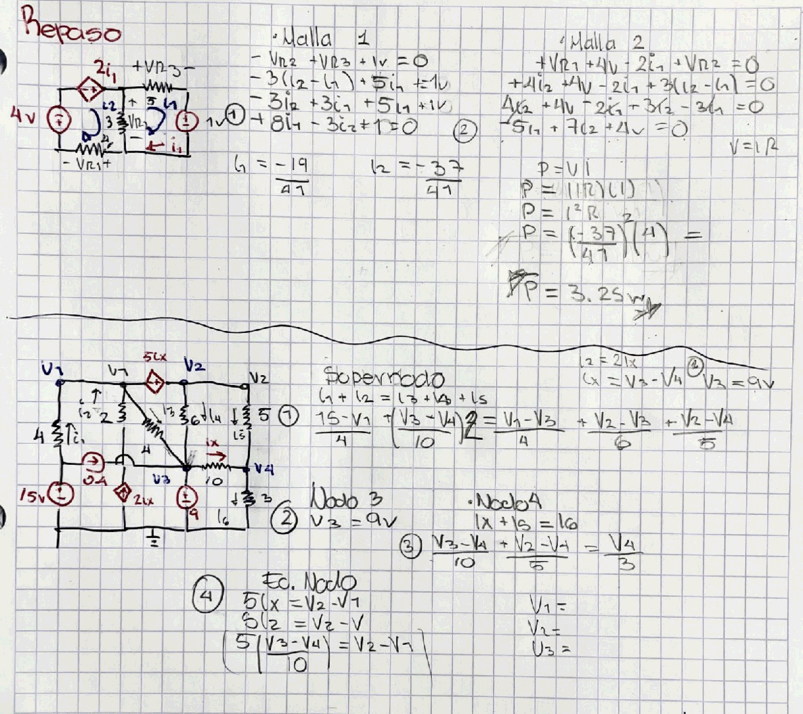 Repaso
2i₁
+VR3-
4v
i2
3
+
VR2
-
5
i1
1v
4
i₁
- VR1+
· Malla 1
- VR2 + VR3 + 1v = 0
- 3(i2-i1) + 5i1 + 1v
- 3i2 + 3i1 + 5i1 + 1v
① + 8i1 - 3i2 + 1 = 0
i1 = -19/41
i2 = -37/41
· Malla 2
+VR1 + 4v - 2i1 + VR2 = 0
+4i2 + 4v - 2i1 + 3(i2-i1) = 0
4i2 + 4v - 2i1 + 3i2 - 3i1 = 0
② -5i1 + 7i2 + 4v = 0
V=IR
P = VI
P = (IR)(I)
P = I²R
P = (-37/41)²(4) =
P = 3.25w
V1
V1
5ix
V2
V2
i2
2
4
i1
4
i3
6
i4
i5
5
ix
V3
10
V4
15v
2ix
9
i6
3
Supernodo
i1 + i2 = i3 + i4 + i5
① 15-V1/4 + (V3-V4/10)2 = V1-V3/4 + V2-V3/6 + V2-V4/5
i2 = 2ix
ix = V3-V4
V3 = 9v
Nodo 3
② V3 = 9v
· Nodo 4
ix + i5 = i6
③ V3-V4/10 + V2-V4/5 = V4/3
④ Ec. Nodo
5ix = V2-V1
5i2 = V2-V
5(V3-V4/10) = V2-V1
V1 =
V2 =
V3 =